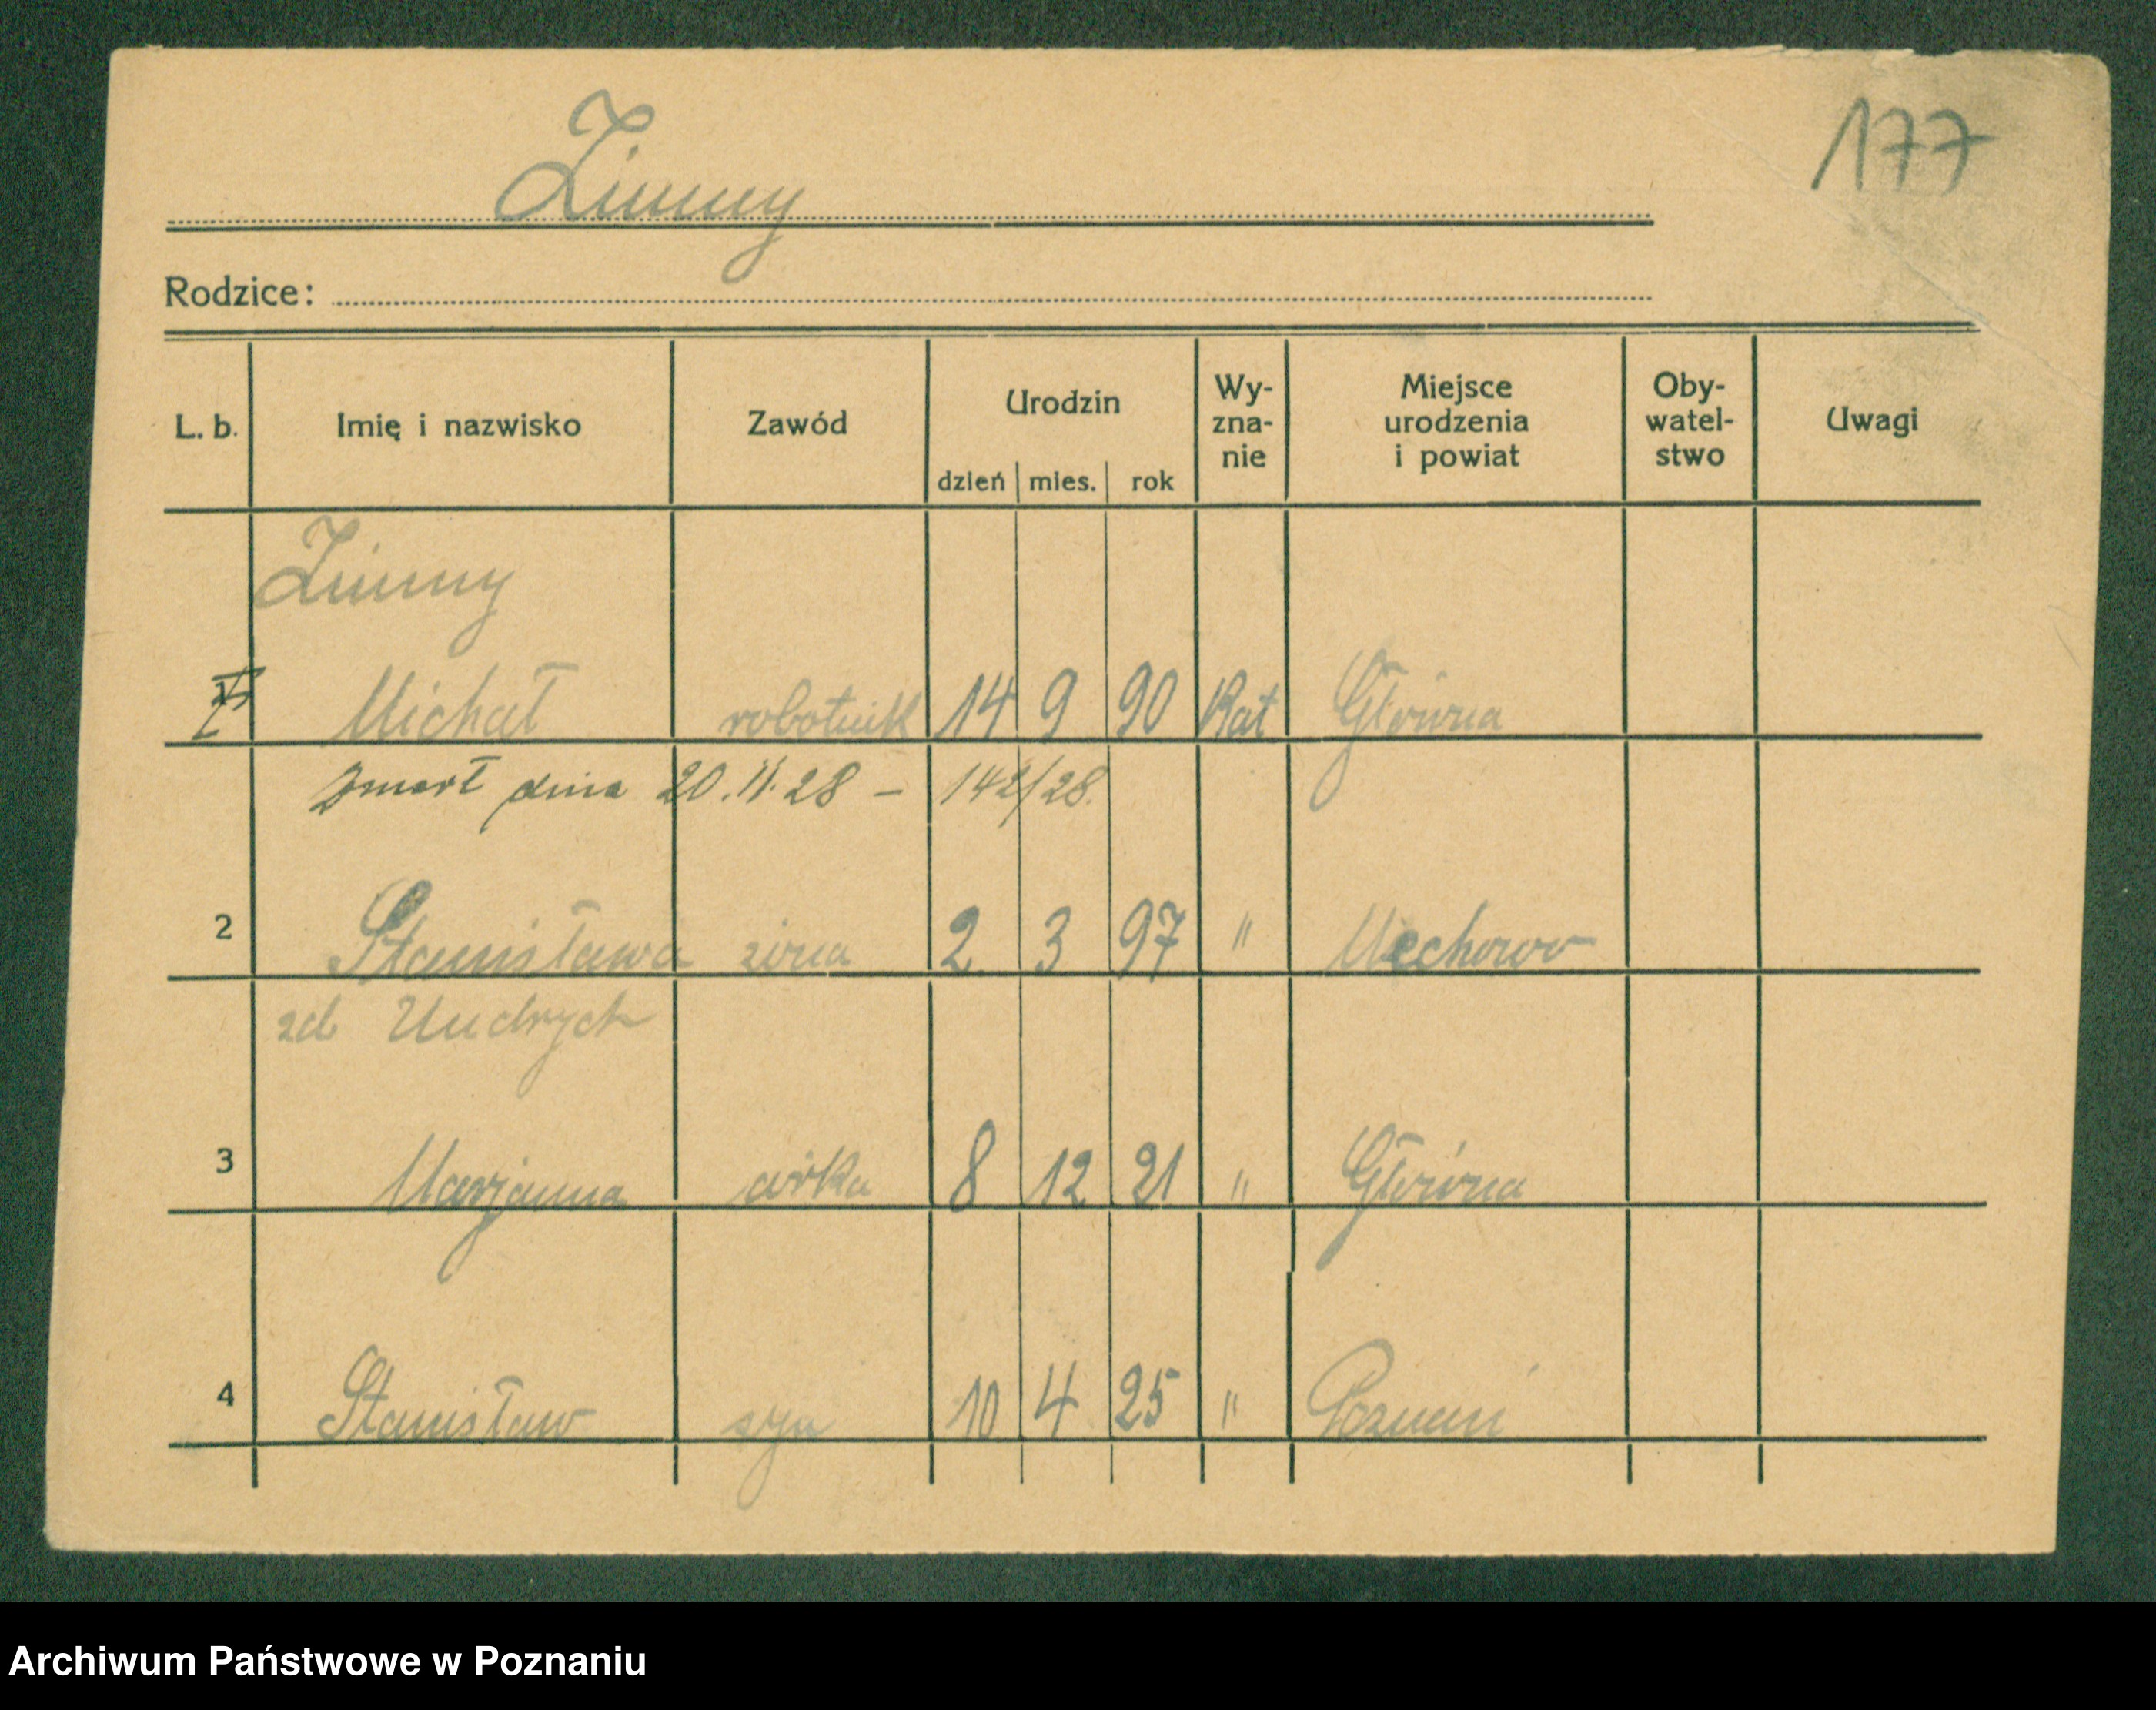 177
Zimny
Rodzice:
L. b. Imię i nazwisko Zawód Urodzin dzień mies. rok Wy-zna-nie Miejsce urodzenia i powiat Oby-watel-stwo Uwagi
Zimny
Michał robotnik 14 9 90 Kat Główna
zmarł dnia 20.11.28 – 142/28.
2 Stanisława żona 2 3 97 " Mechowo
zd
3 Marjanna córka 8 12 21 " Główna
4 Stanisław syn 10 4 25 " Poznań
Archiwum Państwowe w Poznaniu